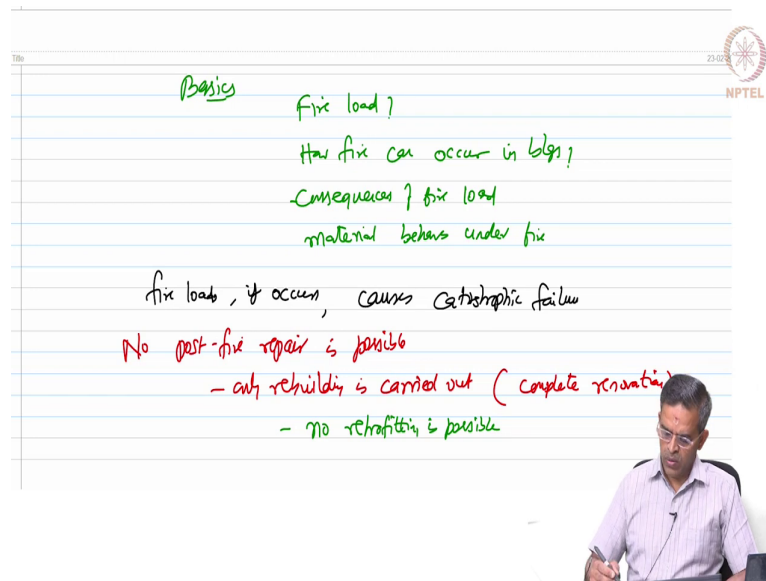 Title
23-02-
NPTEL
Basics
Fire load?
How fire can occur in bldgs?
- Consequences of fire load
material behavs under fire
fire loads, if occurs, causes catastrophic failure
No post-fire repair is possible
- only rebuilding is carried out (complete renovation)
- no retrofitting is possible